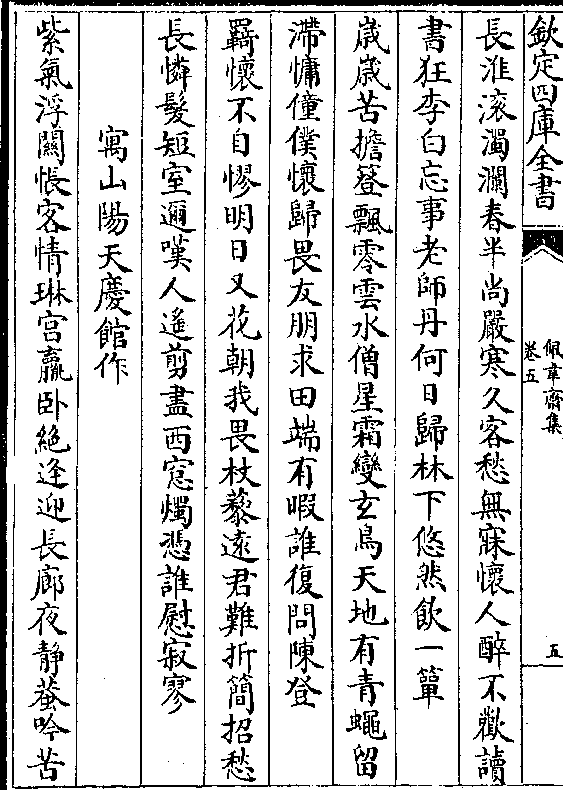 欽定四庫全書
佩韋齋集
卷五
五
長淮滚濁瀾春半尚嚴寒久客愁無寐懷人醉不歡讀
書狂李白忘事老師丹何日歸林下悠然飲一簞
嵗嵗苦擔簦飄零雲水僧星霜變玄鳥天地有青蠅留
滯慵僮僕懷歸畏友朋求田端有暇誰復問陳登
羇懷不自憀明日又花朝我畏杖藜逺君難折簡招愁
長憐髮短室邇嘆人遙剪盡西窓燭憑誰慰寂寥
寓山陽天慶館作
紫氣浮關悵客情琳宫羸卧絶逢迎長廊夜静蛩吟苦